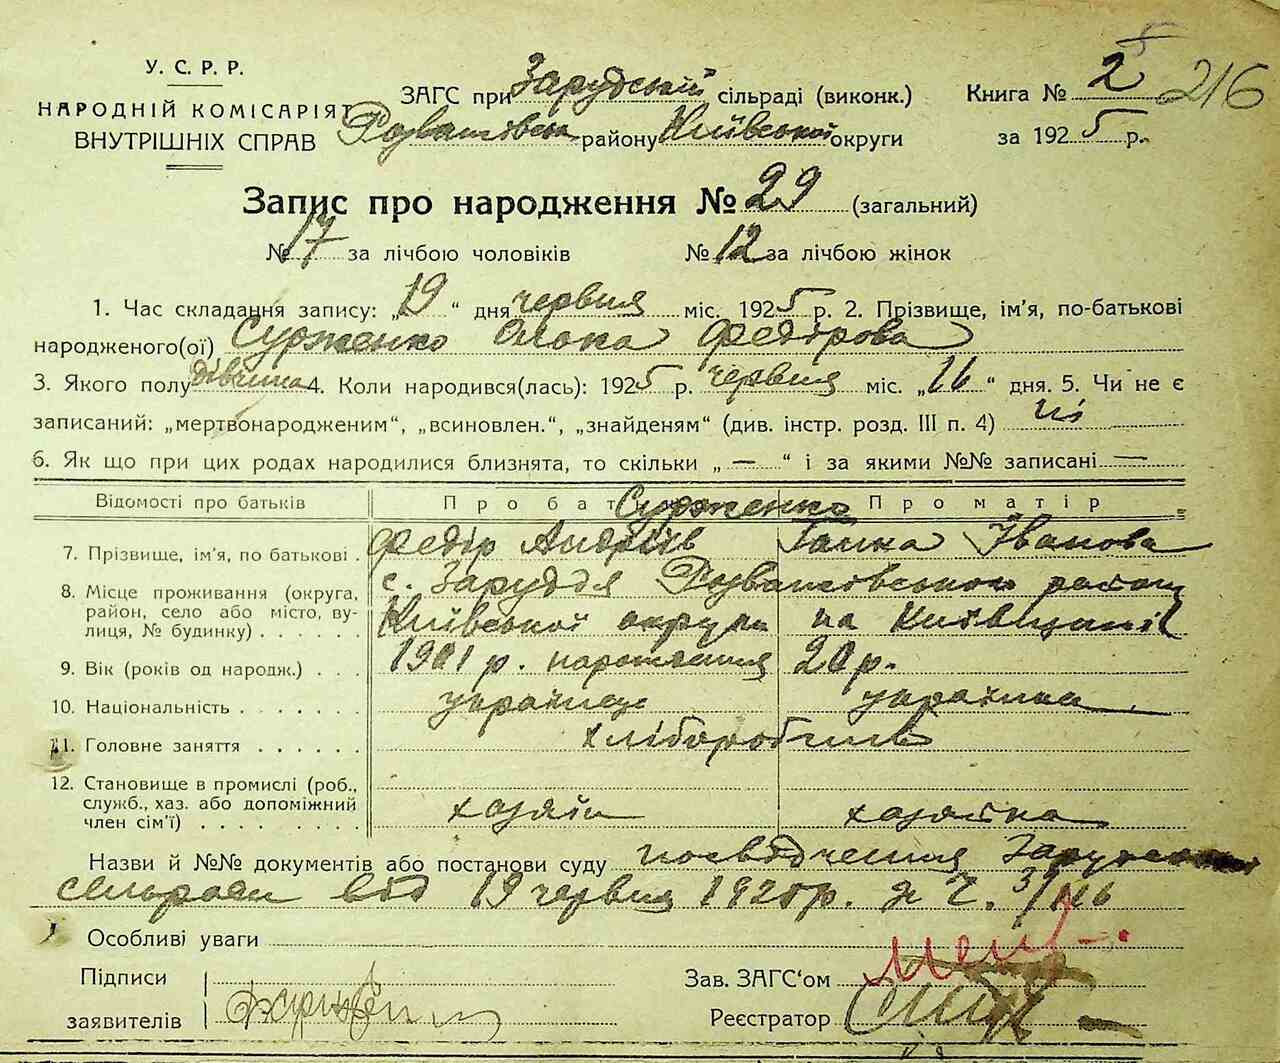 У. С. Р. Р.
НАРОДНІЙ КОМІСАРІЯТ
ВНУТРІШНІХ СПРАВ
ЗАГС при Зарудській сільраді (виконк.)
Розважівськ району Київської округи
Книга № 2
216
за 1925 р.
Запис про народження № 29 (загальний)
№ 17 за лічбою чоловіків № 12 за лічбою жінок
1. Час складання запису: „19“ дня червня міс. 1925 р. 2. Прізвище, ім'я, по-батькові
народженого(ої) Сурженко Федірова
3. Якого полу дівчина 4. Коли народився(лась): 1925 р. червня міс. „16“ дня. 5. Чи не є
записаний: „мертвонародженим“, „всиновлен.“, „знайденям“ (див. інстр. розд. III п. 4) ні
6. Як що при цих родах народилися близнята, то скільки „ — “ і за якими №№ записані —
Відомості про батьків Про бат Сурженко Про матір
7. Прізвище, ім'я, по батькові . Федір Андріїв Ганка Іванова
8. Місце проживання (округа, район, село або місто, вулиця, № будинку) . . . . . . с. Заруддя Розважівського району
Київської округи на Київщині
9. Вік (років од народж.) . . . 1901 р. нарождения 20 р.
10. Національність . . . . . . . українець українка
11. Головне заняття . . . . . . хліборобство
12. Становище в промислі (роб., служб., хаз. або допоміжний член сім'ї) . . . . . . . . хазяїн хазяйка
Назви й №№ документів або постанови суду посвідчення
сільради від 19 червня 1925 р. за ч.
Особливі уваги
Підписи
заявителів
Зав. ЗАГС‘ом
Реєстратор